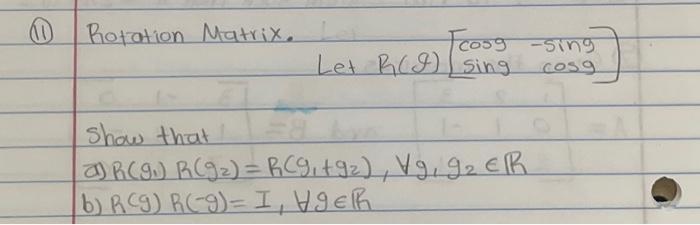 (11) Rotation Matrix.
Let R(g) [cosg -sing
sing cosg]
Show that
a) R(g1) R(g2) = R(g1+g2), ∀g1 g2 ∈ ℝ
b) R(g) R(-g) = I, ∀g∈ℝ